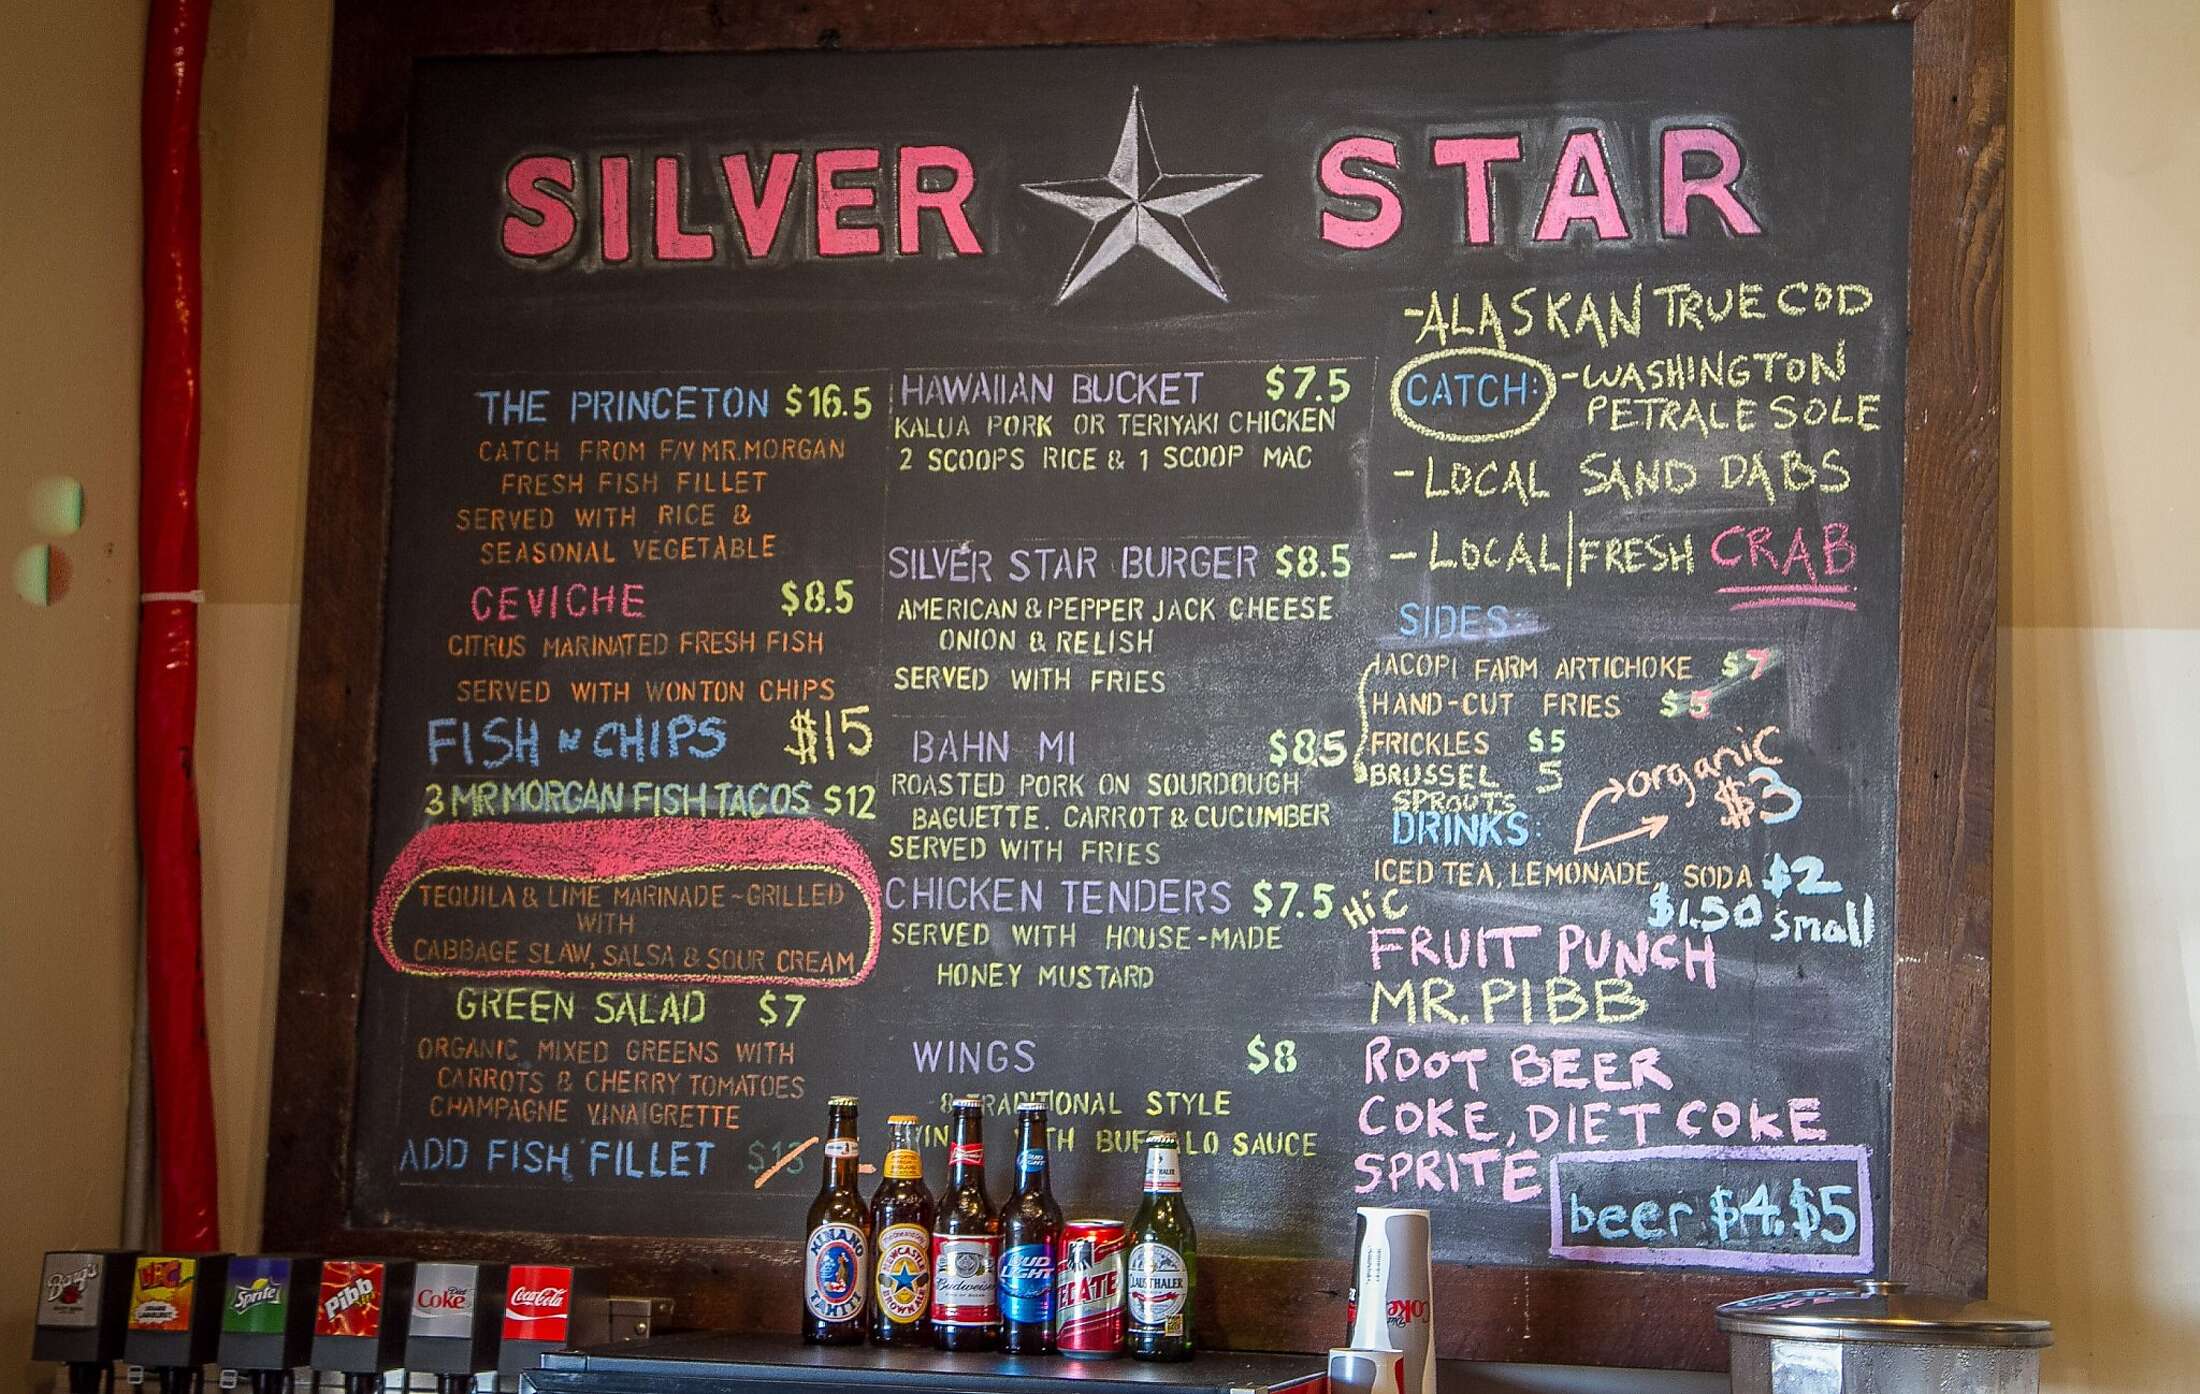 SILVER STAR
THE PRINCETON $16.5
CATCH FROM F/V MR. MORGAN
FRESH FISH FILLET
SERVED WITH RICE &
SEASONAL VEGETABLE
CEVICHE $8.5
CITRUS MARINATED FRESH FISH
SERVED WITH WONTON CHIPS
FISH N CHIPS $15
3 MR MORGAN FISH TACOS $12
TEQUILA & LIME MARINADE ~ GRILLED
WITH
CABBAGE SLAW, SALSA & SOUR CREAM
GREEN SALAD $7
ORGANIC MIXED GREENS WITH
CARROTS & CHERRY TOMATOES
CHAMPAGNE VINAIGRETTE
ADD FISH FILLET $13
HAWAIIAN BUCKET $7.5
KALUA PORK OR TERIYAKI CHICKEN
2 SCOOPS RICE & 1 SCOOP MAC
SILVER STAR BURGER $8.5
AMERICAN & PEPPER JACK CHEESE
ONION & RELISH
SERVED WITH FRIES
BAHN MI $8.5
ROASTED PORK ON SOURDOUGH
BAGUETTE. CARROT & CUCUMBER
SERVED WITH FRIES
CHICKEN TENDERS $7.5
SERVED WITH HOUSE-MADE
HONEY MUSTARD
WINGS $8
8 TRADITIONAL STYLE
SAUCE
CATCH:
-ALASKAN TRUE COD
-WASHINGTON
PETRALE SOLE
-LOCAL SAND DABS
-LOCAL/FRESH CRAB
SIDES:
IACOPI FARM ARTICHOKE $7
HAND-CUT FRIES $5
FRICKLES $5
BRUSSEL 5
SPROUTS
DRINKS:
organic
$3
ICED TEA, LEMONADE, SODA $2
$1.50 small
HiC
FRUIT PUNCH
MR. PIBB
ROOT BEER
COKE, DIET COKE
SPRITE
beer $4.$5
Barq's
Sprite
Pibb
Diet
Coke
Coca-Cola
HINANO
TAHITI
NEWCASTLE
BROWN ALE
Budweiser
BUD LIGHT
BUD
LIGHT
TECATE
CLAUSTHALER
Coke